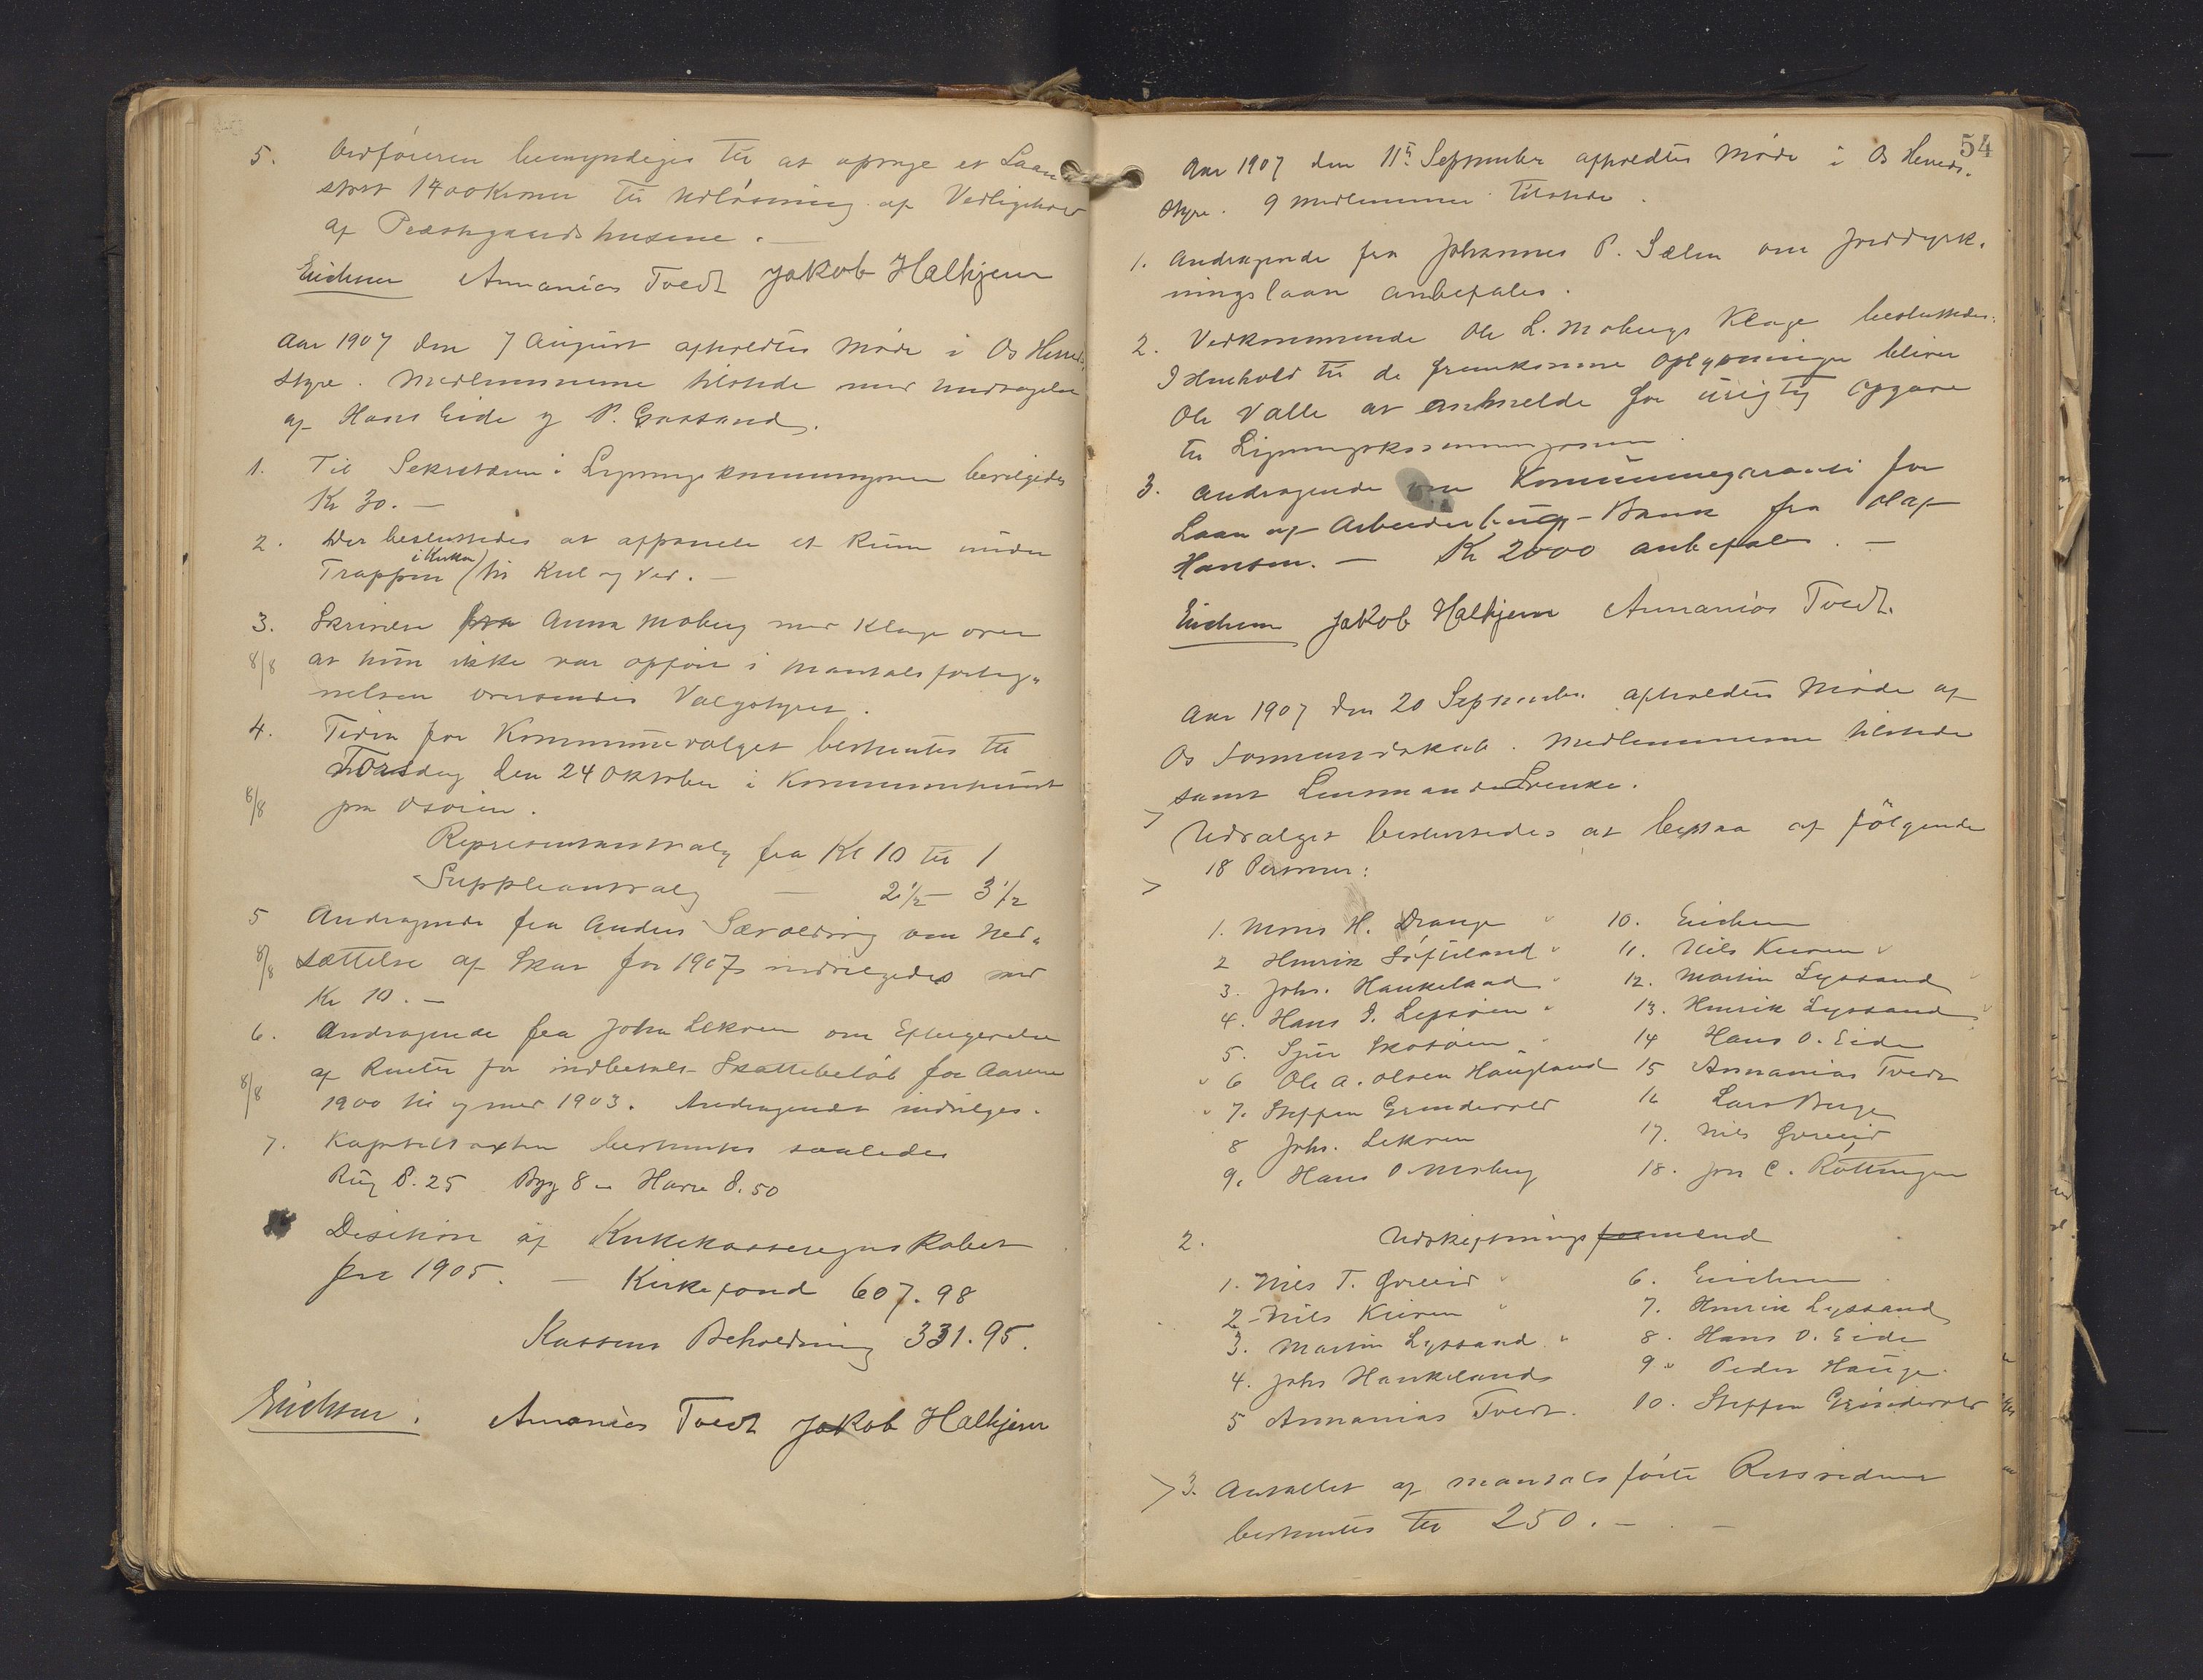 5. Ordføreren bemyndiges til at optage et Laan
stort 1400 Kroner til Udløsning af Vedligehold
af Præstegaardshusene. —
Erichsen Annanias Tvedt Jakob Halhjem
Aar 1907 den 7 August afholdtes Møde i Os Herred-
styre. Medlemmerne tilstede med Undtagelse
af Hans Eide og P. Gaasand.
1. Til Sekretæren i Ligningskommisjonen bevilgedes
Kr 30. —
2. Der besluttedes at afpanele et Rum under
i Kirken
Trappen til Kul og Ved. —
3. Skrivelse fra Anna Moberg med Klage over
8/8 at hun ikke var opført i Mantalsforteg„
nelsen oversendes Valgstyret.
4. Tiden for Kommunevalget bestemtes til
Torsdag den 24 Oktober i Kommunehuset
8/8 paa Osøren.
Representantvalg fra Kl 10 til 1
Suppleantvalg — 2½ – 3½
5 Andragende fra Anders Særvoldsvig om Ned„
8/8 sættelse af Skat for 1907 indvilgedes med
Kr 10. —
6. Andragende fra John Lekven om Eftergivelse
af Renter for indbetalt Skattebeløb for Aarene
8/8 1900 til og med 1903. Andragendet indvilges.
7. Kapitelstaxten bestemtes saaledes
Rug 8.25 Byg 8 – Havre 8.50
Desition af Kirkekasseregnskabet
for 1905. — Kirkefond 607.98
Kassens Beholdning 331.95.
Erichsen. Ananias Tvedt Jakob Halhjem
54
Aar 1907 den 11te September afholdtes Møde i Os Herreds-
styre. 9 Medlemmer tilstede.
1. Andragende fra Johannes P. Sælen om Jorddyrk-
ningslaan anbefales.
2. Vedkommende Ole L. Mobergs Klage besluttedes:
I Henhold til de fremkomne Oplysninger bliver
Ole Valle at anmelde for urigtig Opgave
til Ligningskommisjonen.
3. Andragende om Kommunegaranti for
Laan af Arbeiderbrug-Bank fra Olaf
Hansen. — Kr 2000 anbefales. —
Erichsen Jakob Halhjem Annanias Tvedt.
Aar 1907 den 20 September afholdtes Møde af
Os Formandskab. Medlemmerne tilstede
samt Lensmanden
> Udvalget besluttedes at bestaa af følgende
> 18 Personer:
1. Mons H. Drange
2 Henrik Søfteland
3. Johs. Haukeland
4. Hans J. Lepsøien
5. Sjur Skorøien
6 Ole A. Olsen Haugland
7. Steffen Grindevold
8 Johs. Lekven
9. Hans O Moberg
10. Erichsen
11. Nils Kuven
12. Martin Lyssand
13. Henrik Lyssand
14 Hans O. Eide
15 Annanias Tvedt
16 Lars Berge
17. Nils Gveeid
18. Jon C. Røttingen
2. Udskiftningsformænd
1. Nils T. Gveeid
2 Nils Kuven
3. Martin Lyssand
4. Johs Haukeland
5 Annanias Tvedt.
6. Erichsen
7. Henrik Lyssand
8. Hans O. Eide
9 Peder Hauge
10. Steffen Grindevold
> 3. Antallet af mantalsførte Retsvidner
bestemtes til 250. —